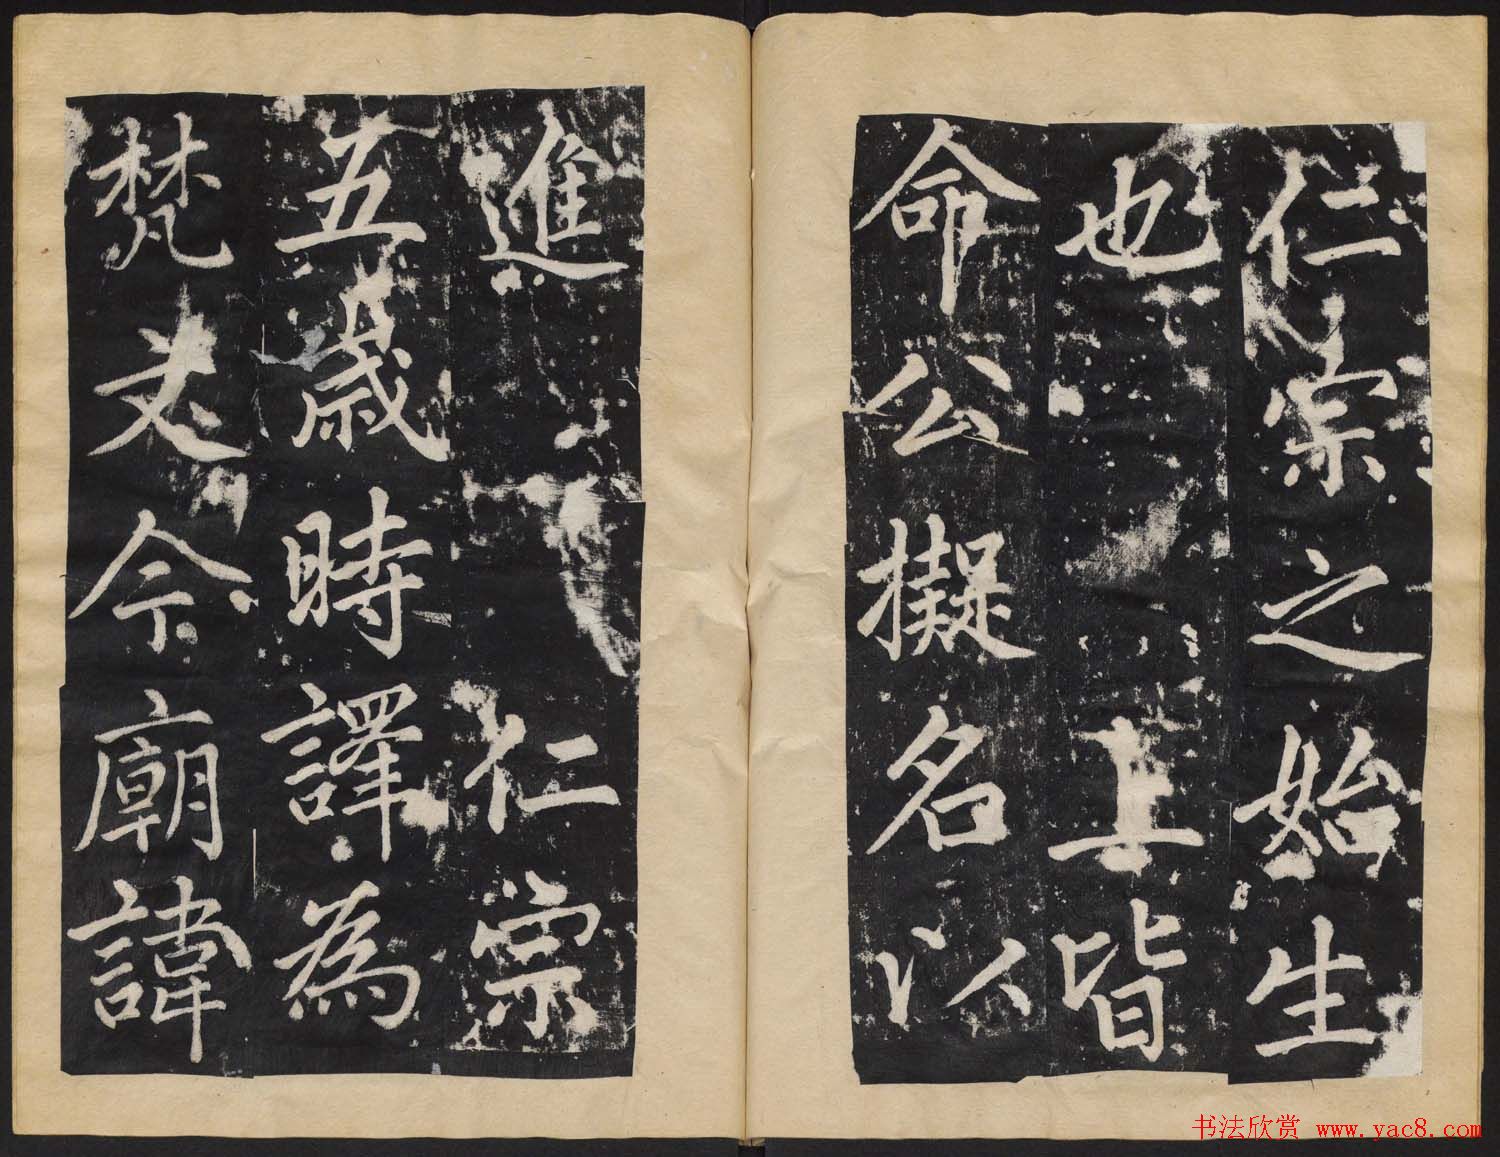 仁宗之始生
也上皆
命公擬名以
進仁宗
五歲時譯為
梵夾今廟諱
书法欣赏 www.yac8.com